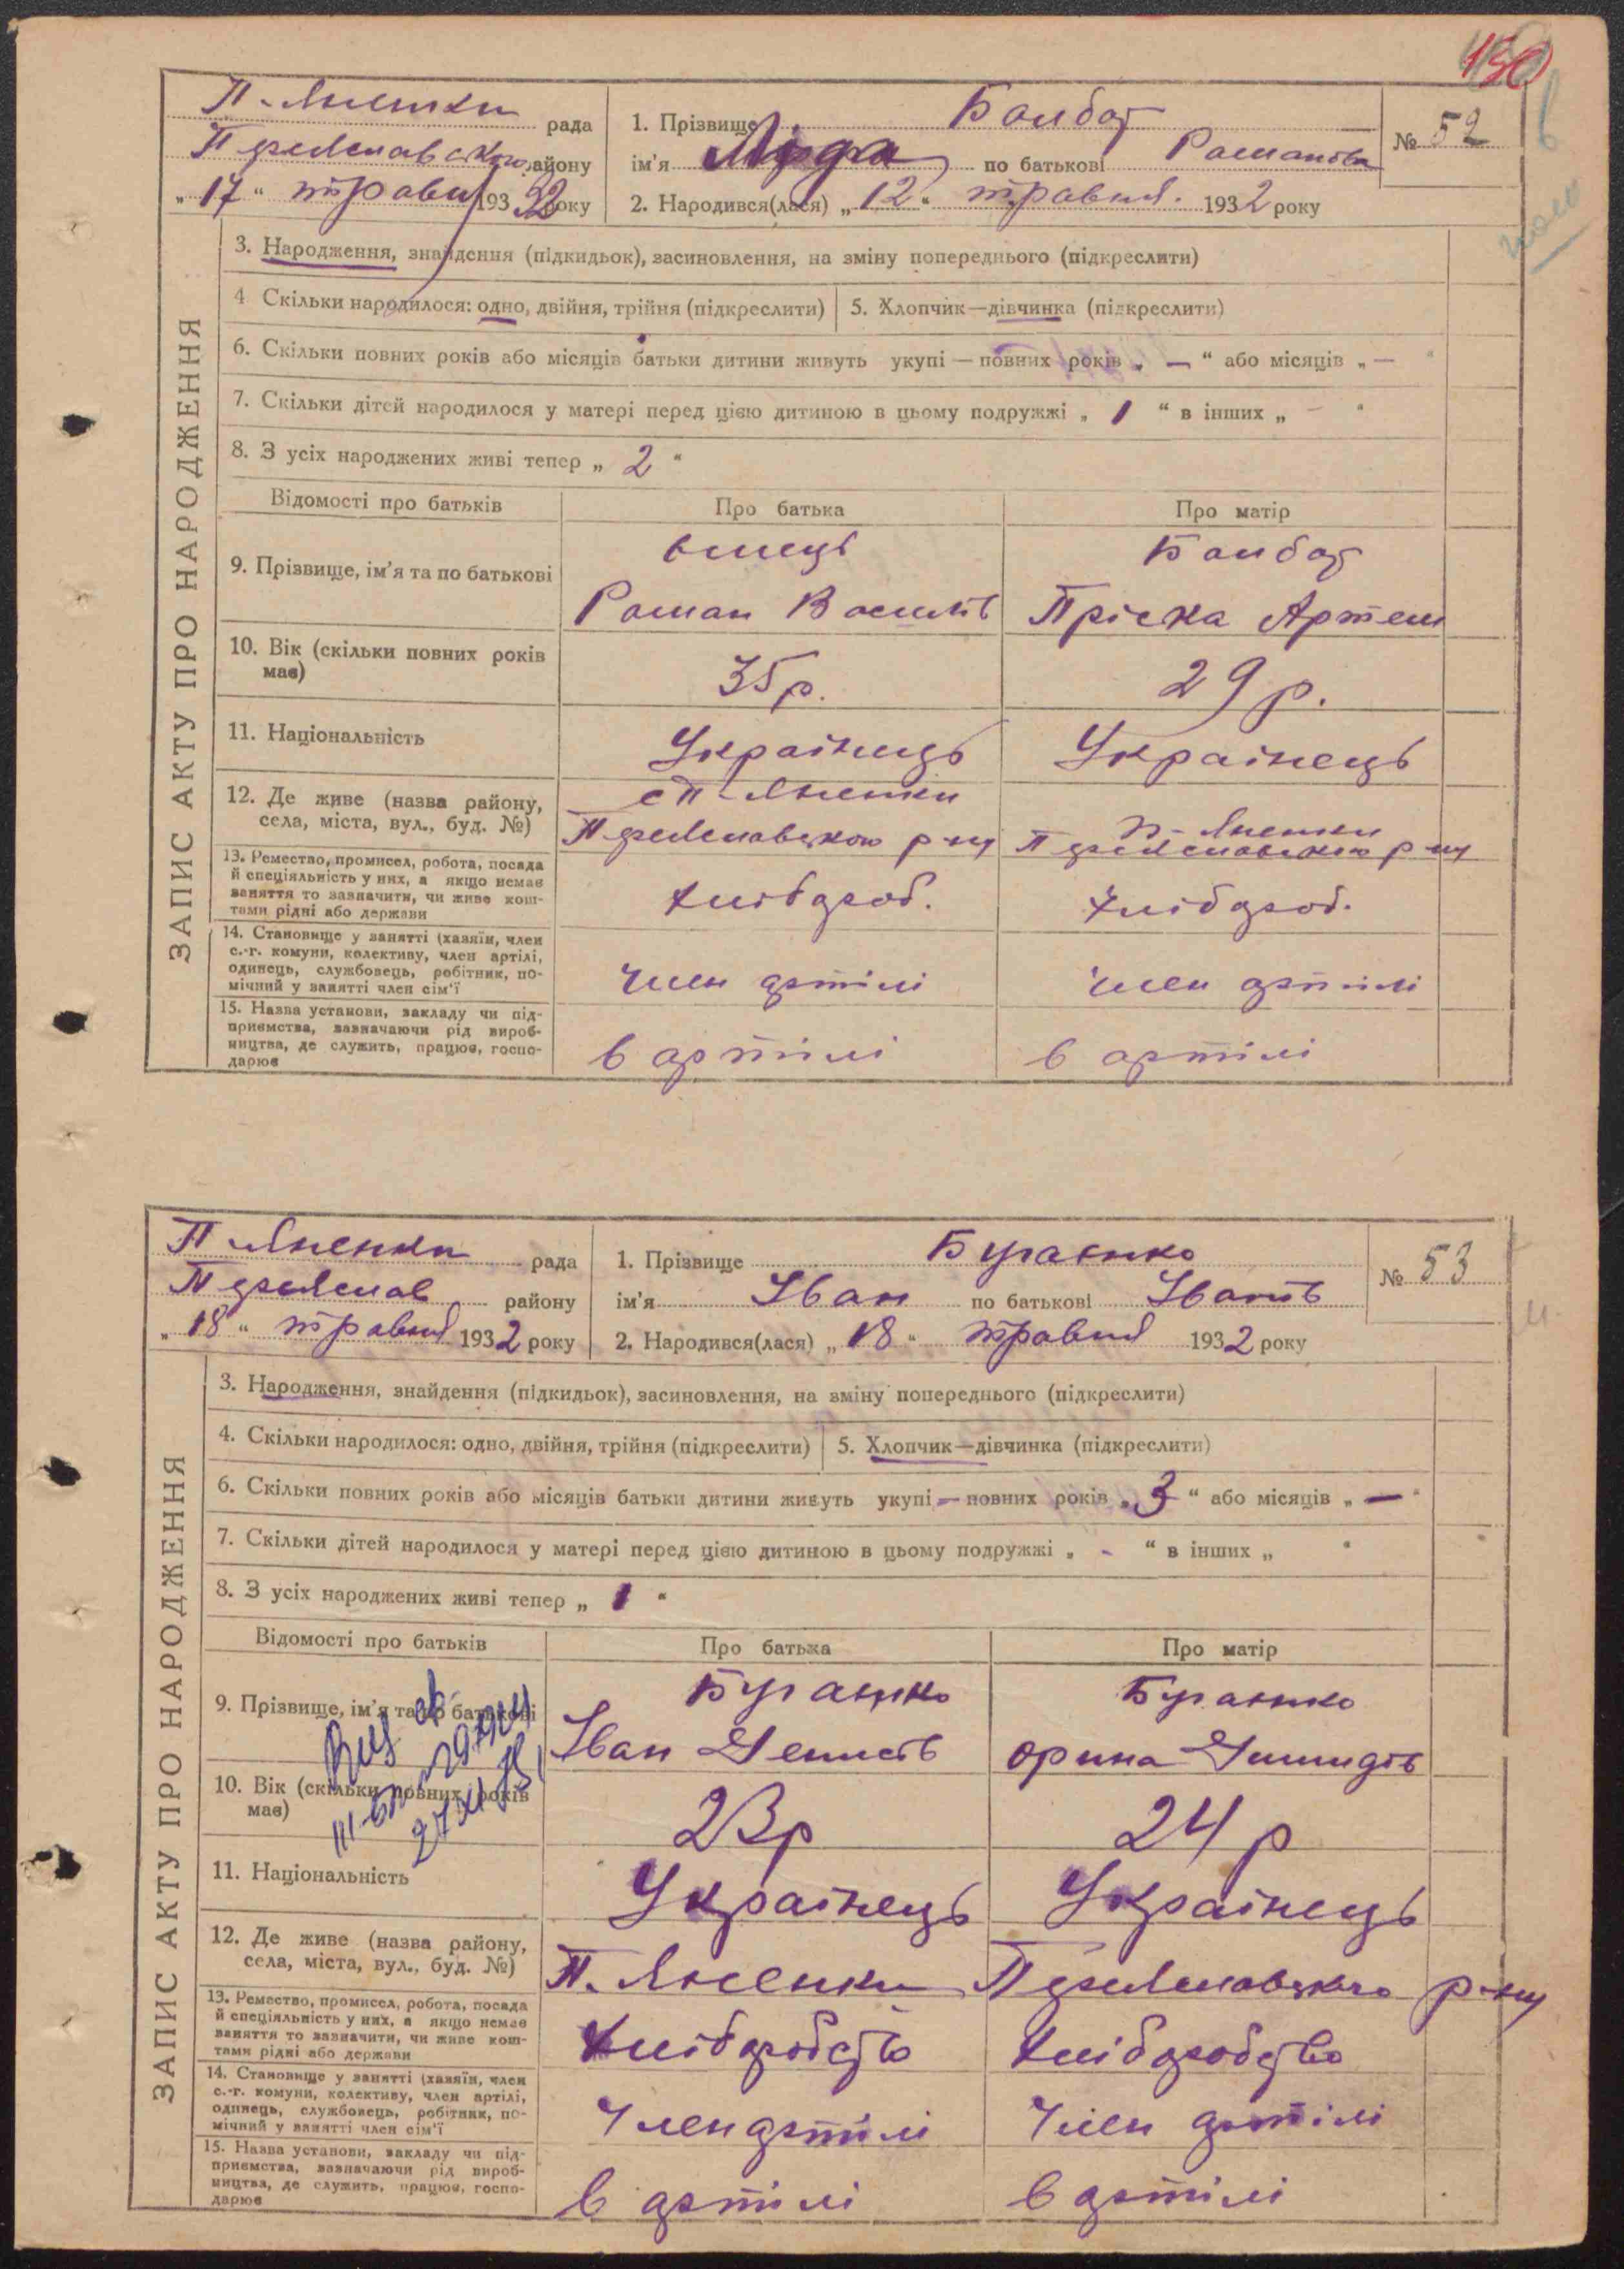 150
П-Яненки рада
Переяславського району
„17“ травня 1932 року
1. Прізвище Балбат
ім'я Ліда по батькові Романовна
№ 52
2. Народився(лася) „12“ травня 1932 року
ЗАПИС АКТУ ПРО НАРОДЖЕННЯ
3. Народження, знайдення (підкидьок), засиновлення, на зміну попереднього (підкреслити)
4. Скільки народилося: одно, двійня, трійня (підкреслити) 5. Хлопчик—дівчинка (підкреслити)
6. Скільки повних років або місяців батьки дитини живуть укупі — повних років „ — “ або місяців „ — “
7. Скільки дітей народилося у матері перед цією дитиною в цьому подружжі „ 1 “ в інших „ - “
8. З усіх народжених живі тепер „ 2 “
Відомості про батьків Про батька Про матір
9. Прізвище, ім'я та по батькові
Балбат
Роман Василів Пріська Артем
10. Вік (скільки повних років має) 35 р. 29 р.
11. Національність Українець Українець
12. Де живе (назва району, села, міста, вул., буд. №)
с П-Яненки П-Яненки
Переяславського р-ну Переяславського р-ну
13. Ремество, промисел, робота, посада й спеціяльність у них, а якщо немає заняття то зазначити, чи живе коштами рідні або держави
Хлібороб. Хлібороб.
14. Становище у занятті (хазяїн, член с.-г. комуни, колективу, член артілі, одинець, службовець, робітник, помічний у занятті член сім'ї
член артілі член артілі
15. Назва установи, закладу чи підприємства, зазначаючи рід виробництва, де служить, працює, господарює
в артілі в артілі
П Яненки рада
Переяслав району
„18“ травня 1932 року
1. Прізвище Бугаєнко
ім'я Іван по батькові Іванів
№ 53
2. Народився(лася) „18“ травня 1932 року
ЗАПИС АКТУ ПРО НАРОДЖЕННЯ
3. Народження, знайдення (підкидьок), засиновлення, на зміну попереднього (підкреслити)
4. Скільки народилося: одно, двійня, трійня (підкреслити) 5. Хлопчик—дівчинка (підкреслити)
6. Скільки повних років або місяців батьки дитини живуть укупі — повних років „ 3 “ або місяців „ — “
7. Скільки дітей народилося у матері перед цією дитиною в цьому подружжі „ - “ в інших „ “
8. З усіх народжених живі тепер „ 1 “
Відомості про батьків Про батька Про матір
9. Прізвище, ім'я та по батькові
Бугаєнко Бугаєнко
Іван Денисів Орина Демидів
10. Вік (скільки повних років має) 23 р 24 р
11. Національність Українець Українець
12. Де живе (назва району, села, міста, вул., буд. №)
П. Яненки Переяславського р-ну
13. Ремество, промисел, робота, посада й спеціяльність у них, а якщо немає заняття то зазначити, чи живе коштами рідні або держави
Хліборобство Хліборобство
14. Становище у занятті (хазяїн, член с.-г. комуни, колективу, член артілі, одинець, службовець, робітник, помічний у занятті член сім'ї
Член артілі Член артілі
15. Назва установи, закладу чи підприємства, зазначаючи рід виробництва, де служить, працює, господарює
в артілі в артілі